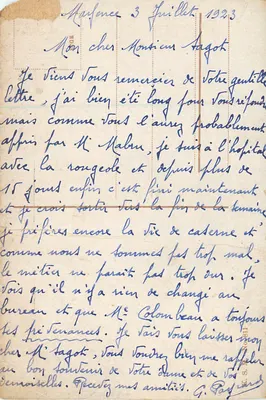 Mayence 3 Juillet 1923
Mon cher Monsieur Sagot
Je viens vous remercier de votre gentille
lettre, j'ai bien été long pour vous répondre
mais comme vous l'aurez probablement
appris par Mr , je suis à l'hopital
avec la rougeole et depuis plus de
15 jours enfin c'est fini maintenant
et je crois sortir vers la fin de la semaine
je préfères encore la vie de caserne et
comme nous ne sommes pas trop mal,
le métier ne parait pas trop dur. Je
vois qu'il n'a rien de changé au
bureau et que Mr Colombeau a toujours
ses prévenances. Je vais vous laisser mon
cher Mr Sagot, vous voudrez bien me rappeler
au bon souvenir de votre dame et de vos
demoiselles. Recevez mes amitiés. G.